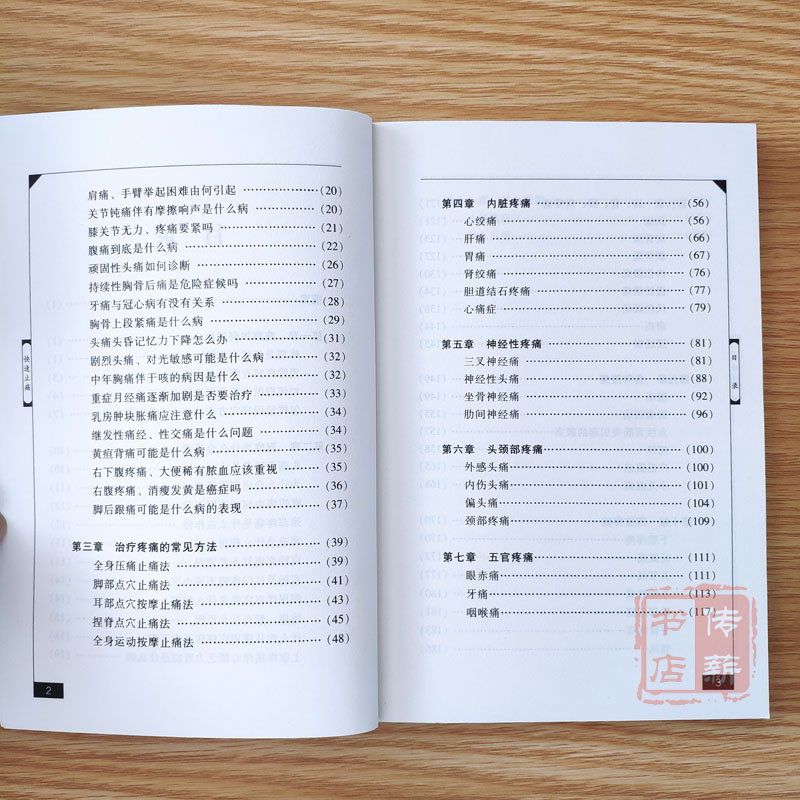 肩痛、手臂举起困难由何引起 ……………(20)
关节钝痛伴有摩擦响声是什么病 …………(20)
膝关节无力、疼痛要紧吗 …………………(21)
腹痛到底是什么病 …………………………(22)
顽固性头痛如何诊断 ………………………(26)
持续性胸骨后痛是危险症候吗 ……………(27)
牙痛与冠心病有没有关系 …………………(28)
胸骨上段紧痛是什么病 ……………………(29)
头痛头昏记忆力下降怎么办 ………………(31)
剧烈头痛、对光敏感可能是什么病 ………(32)
中年胸痛伴干咳的病因是什么 ……………(32)
重症月经痛逐渐加剧是否要治疗 …………(33)
乳房肿块胀痛应注意什么 …………………(34)
继发性痛经、性交痛是什么问题 …………(34)
黄疸背痛可能是什么病 ……………………(35)
右下腹疼痛、大便稀有脓血应该重视 ……(35)
右腹疼痛、消瘦发黄是癌症吗 ……………(36)
脚后跟痛可能是什么病的表现 ……………(37)
第三章 治疗疼痛的常见方法 ……………(39)
全身压痛止痛法 ……………………………(39)
脚部点穴止痛法 ……………………………(41)
耳部点穴按摩止痛法 ………………………(43)
捏脊点穴止痛法 ……………………………(45)
全身运动按摩止痛法 ………………………(48)
快速止痛
2
第四章 内脏疼痛 …………………………(56)
心绞痛 ………………………………………(56)
肝痛 …………………………………………(66)
胃痛 …………………………………………(67)
肾绞痛 ………………………………………(76)
胆道结石疼痛 ………………………………(77)
心痛症 ………………………………………(79)
第五章 神经性疼痛 ………………………(81)
三叉神经痛 …………………………………(81)
神经性头痛 …………………………………(88)
坐骨神经痛 …………………………………(92)
肋间神经痛 …………………………………(96)
第六章 头颈部疼痛 ………………………(100)
外感头痛 ……………………………………(100)
内伤头痛 ……………………………………(101)
偏头痛 ………………………………………(104)
颈部疼痛 ……………………………………(109)
第七章 五官疼痛 …………………………(111)
眼赤痛 ………………………………………(111)
牙痛 …………………………………………(113)
咽喉痛 ………………………………………(117)
目录
3
传薪书店